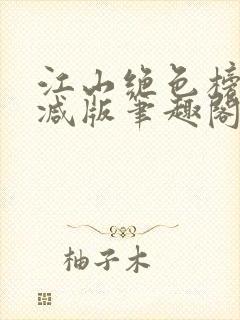 江山绝色榜
减版笔趣阁
柚子木